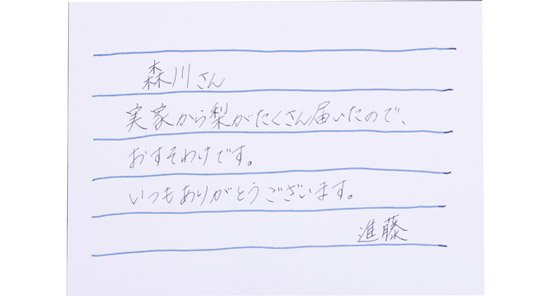 森川さん
実家から梨がたくさん届いたので、
おすそわけです。
いつもありがとうございます。
進藤